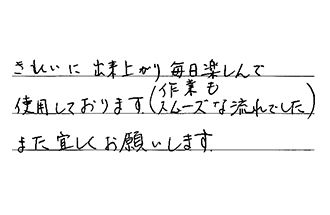 きれいに出来上がり毎日楽しんで
使用しております。(作業も
スムーズな流れでした)
また宜しくお願いします